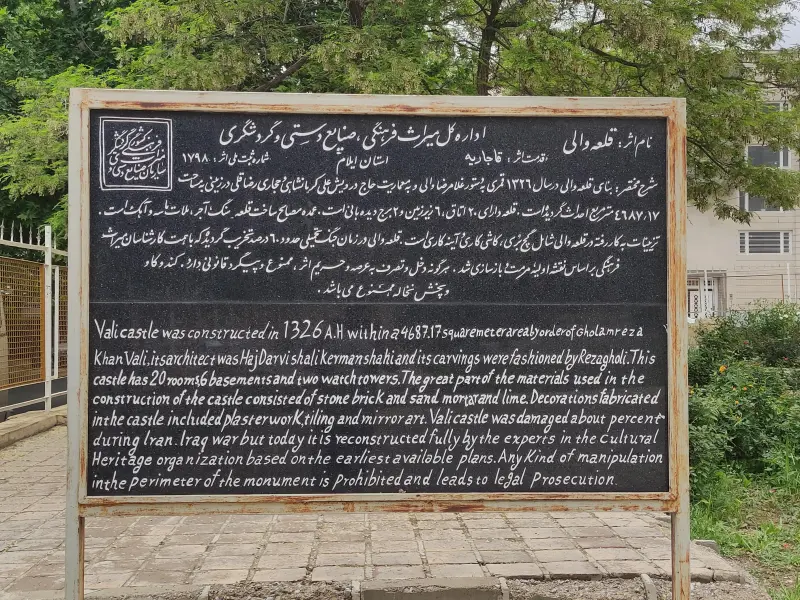 اداره کل میراث فرهنگی، صنایع دستی و گردشگری
نام اثر: قلعه والی قدمت اثر: قاجاریه استان ایلام شماره ثبت ملی اثر: ۱۷۹۸
شرح مختصر: بنای قلعه والی در سال ۱۳۲۶ قمری بدستور غلامرضا والی و به معماریت حاج درویش علی کرمانشاهی و حجاری رضا قلی در زمینی بمساحت
۴۶۸۷.۱۷ متر مربع احداث گردیده است. قلعه دارای ۲۰ اتاق، ۶ زیرزمین و ۲ برج دیده بانی است. عمده مصالح ساخت قلعه سنگ، آجر، ملات ماسه و آهک است.
تزئینات به کار رفته در قلعه والی شامل گچ بری، کاشی کاری و آینه کاری است. قلعه والی در زمان جنگ تحمیلی حدود ۶۰ درصد تخریب گردید که با همت کارشناسان میراث
فرهنگی بر اساس نقشه اولیه مرمت و بازسازی شد. هرگونه دخل و تصرف به عرصه و حریم اثر، ممنوع و پیگرد قانونی دارد. کندوکاو
و پخش نخاله ممنوع می باشد.
Vali castle was constructed in 1326 A.H within a 4687.17 square meter area by order of Gholamreza
Khan Vali, its architect was Haj Darvishali Kermanshahi and its carvings were fashioned by Rezagholi. This
castle has 20 rooms, 6 basements and two watch towers. The great part of the materials used in the
construction of the castle consisted of stone brick and sand mortar and lime. Decorations fabricated
in the castle included plaster work, tiling and mirror art. Vali castle was damaged about percent
during Iran. Iraq war but today it is reconstructed fully by the experts in the Cultural
Heritage organization based on the earliest available plans. Any Kind of manipulation
in the Perimeter of the monument is Prohibited and leads to legal Prosecution.